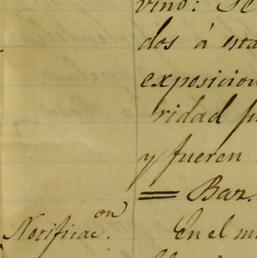 vino: Se
dos á esta
exposicion
ridad p
y fueren
= Bar.
Notificac.on
En el m